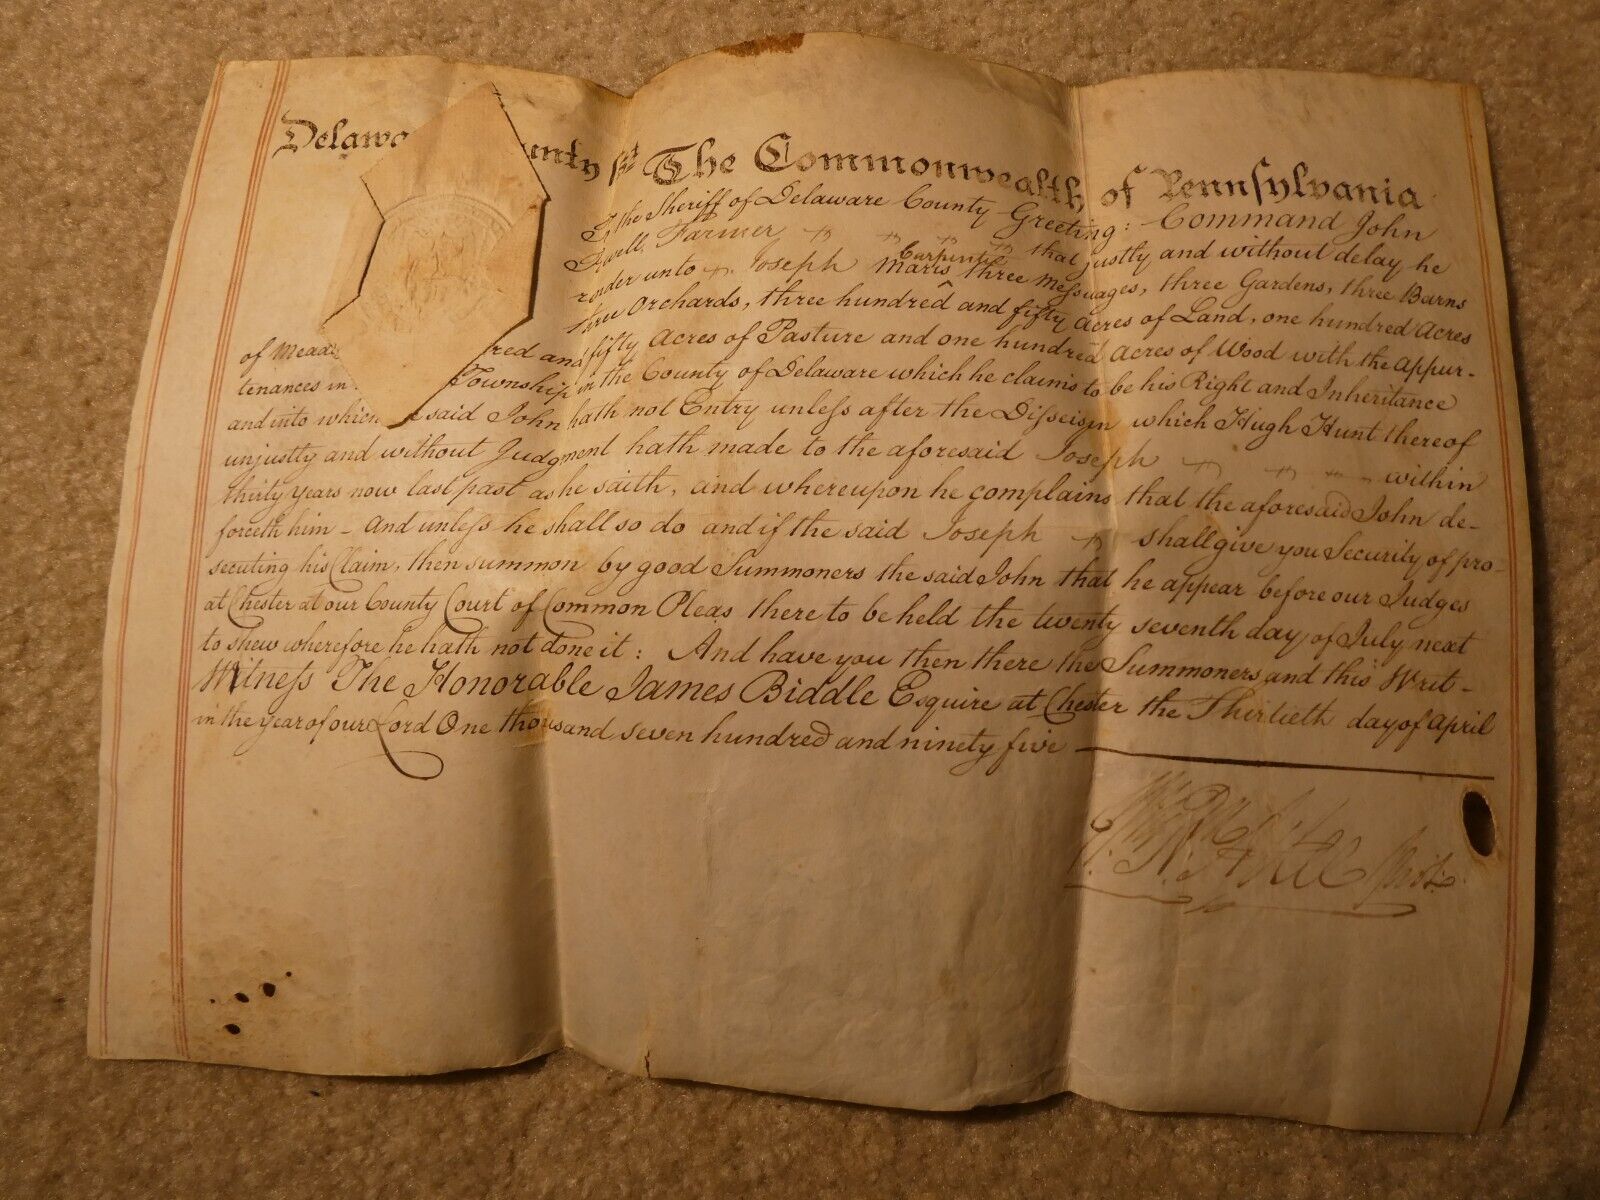 Delawa unty ss The Commonwealth of Pennsylvania
the Sheriff of Delaware County Greeting: Command John
Farmer that justly and without delay he
render unto Joseph Maris Carpenter three messuages, three Gardens, three Barns
three Orchards, three hundred and fifty acres of Land, one hundred Acres
of Mead red and fifty Acres of Pasture and one hundred Acres of Wood with the Appur-
tenances in Township in the County of Delaware which he claims to be his Right and Inheritance
and into which said John hath not Entry unless after the Disseisin which Hugh Hunt thereof
unjustly and without Judgment hath made to the aforesaid Joseph within
thirty years now last past as he saith, and whereupon he complains that the aforesaid John de-
forceth him - And unless he shall so do and if the said Joseph shall give you Security of pro-
secuting his Claim, then summon by good Summoners the said John that he appear before our Judges
at Chester at our County Court of Common Pleas there to be held the twenty seventh day of July next
to shew wherefore he hath not done it: And have you then there the Summoners and this Writ -
Witness The Honorable James Biddle Esquire at Chester the Thirtieth day of April
in the year of our Lord One thousand seven hundred and ninety five